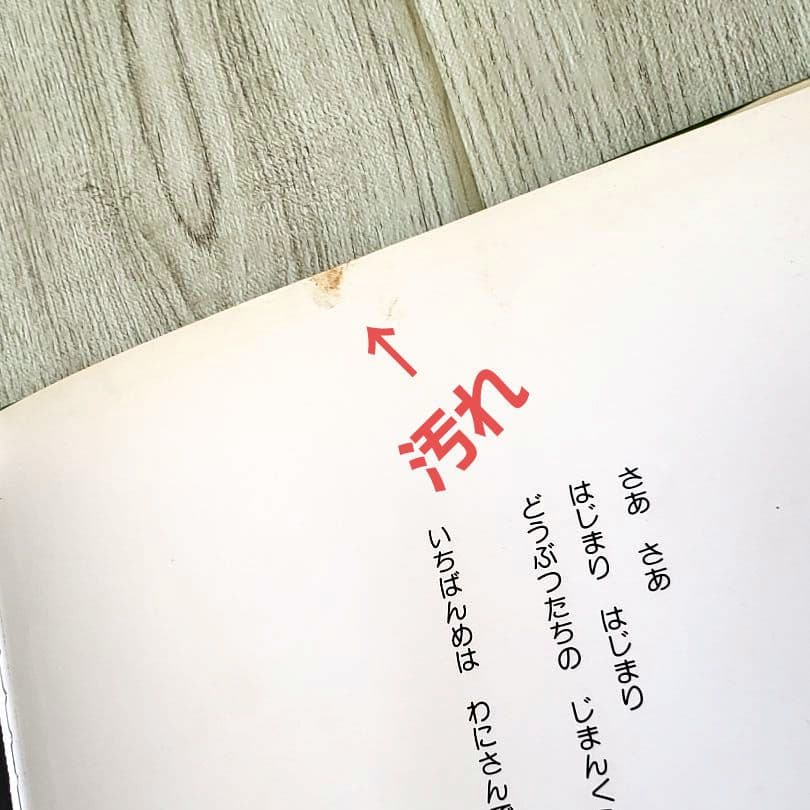 汚れ
さあ　さあ
はじまり　はじまり
どうぶつたちの　じまんく
いちばんめは　わにさんで